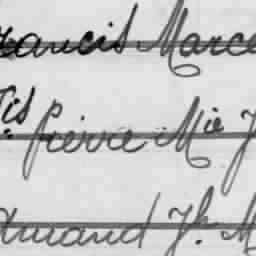 rancis Marce
is Pierre Mie J
Armand Jh. M